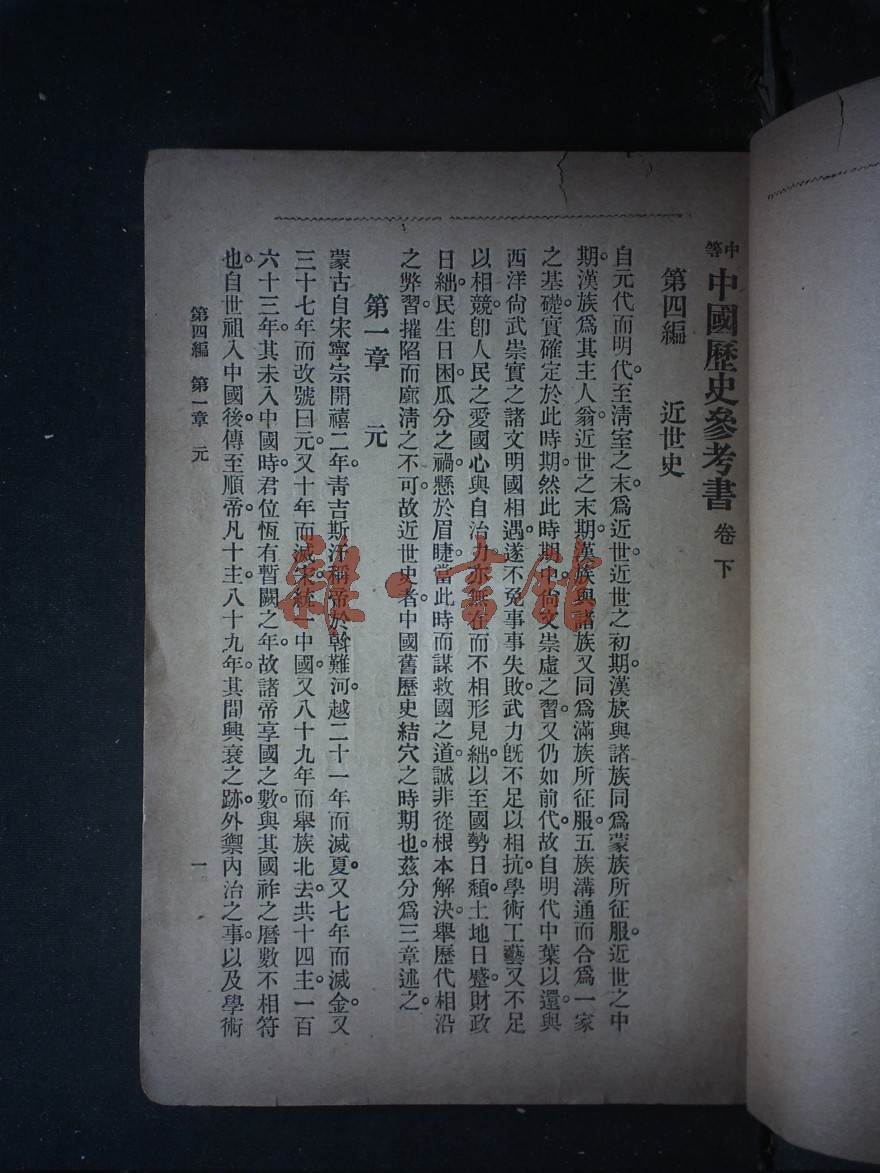 中等 中國歷史參考書 卷下
第四編 近世史
自元代而明代。至淸室之末。爲近世。近世之初期。漢族與諸族同爲蒙族所征服。近世之中
期。漢族爲其主人翁。近世之末期。漢族與諸族又同爲滿族所征服。五族溝通而合爲一家
之基礎。實確定於此時期。然此時期中。尙文崇虛之習。又仍如前代。故自明代中葉以還。與
西洋尙武崇實之諸文明國相遇。遂不免事事失敗。武力旣不足以相抗。學術工藝又不足
以相競。卽人民之愛國心與自治力。亦無在而不相形見絀。以至國勢日頽。土地日蹙。財政
日絀。民生日困。瓜分之禍。懸於眉睫。當此時而謀救國之道。誠非從根本解決。舉歷代相沿
之弊習。摧陷而廓淸之不可。故近世史者。中國舊歷史結穴之時期也。茲分爲三章述之。
第一章 元
蒙古自宋寧宗開禧二年。靑吉斯汗稱帝於斡難河。越二十一年而滅夏。又七年而滅金。又
三十七年而改號曰元。又十年而滅宋。統一中國。又八十九年而舉族北去。共十四主。一百
六十三年。其未入中國時。君位恆有暫闕之年。故諸帝享國之數。與其國祚之曆數不相符
也。自世祖入中國後。傳至順帝。凡十主。八十九年。其間興衰之跡。外禦內治之事。以及學術
第四編 第一章 元 一
雜·書館